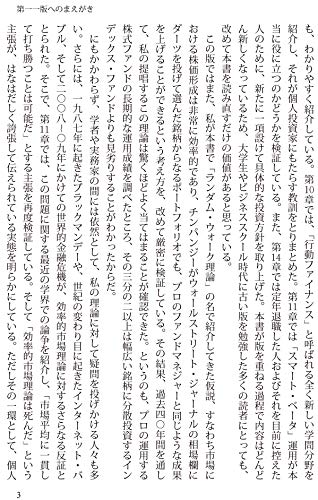 第一一版へのまえがき
も、わかりやすく紹介している。第10章では、「行動ファイナンス」と呼ばれる全く新しい学問分野を
紹介し、それが個人投資家にもたらす教訓をとりまとめた。第11章では「スマート・ベータ」運用が本
当に役に立つのかどうかを検証している。また、第14章では定年退職した人およびそれを目前に控えた
人のために、新たに一項設けて具体的な投資方針を取り上げた。本書が版を重ねる過程で内容はどんど
ん新しくなっているため、大学生やビジネススクール時代に古い版を勉強した多くの読者にとっても、
改めて本書を読み直すだけの価値があると思っている。
この版ではまた、私が本書で「ランダム・ウォーク理論」の名で紹介してきた仮説、すなわち市場に
おける株価形成は非常に効率的であり、チンパンジーがウォールストリート・ジャーナルの相場欄に
ダーツを投げて選んだ銘柄からなるポートフォリオでも、プロのファンドマネジャーと同じような成果
を上げることができるという考え方を、改めて厳密に検証している。その結果、過去四〇年間を通し
て、私の提唱するこの理論は驚くほどよく当てはまることが確認できた。というのも、プロの運用する
株式ファンドの長期的な運用成績を調べたところ、その三分の二以上は幅広い銘柄に分散投資するイン
デックス・ファンドよりも見劣りすることがわかったからだ。
にもかかわらず、学者や実務家の間には依然として、私の理論に対して疑問を投げかける人々も多
い。さらには、一九八七年に起きたブラックマンデーや、世紀の変わり目に起きたインターネット・バ
ブル、そして二〇〇八～〇九年にかけての世界的金融危機が、効率的市場理論に対するさらなる反証と
とらえられた。そこで、第11章では、この問題に関する最近の学界での論争を紹介し、「市場平均に一貫し
て打ち勝つことは可能だ」とする主張を再度検証している。そして「効率的市場理論は死んだ」という
主張が、はなはだしく誇張して伝えられている実態を明らかにしている。ただしその一環として、個人
3